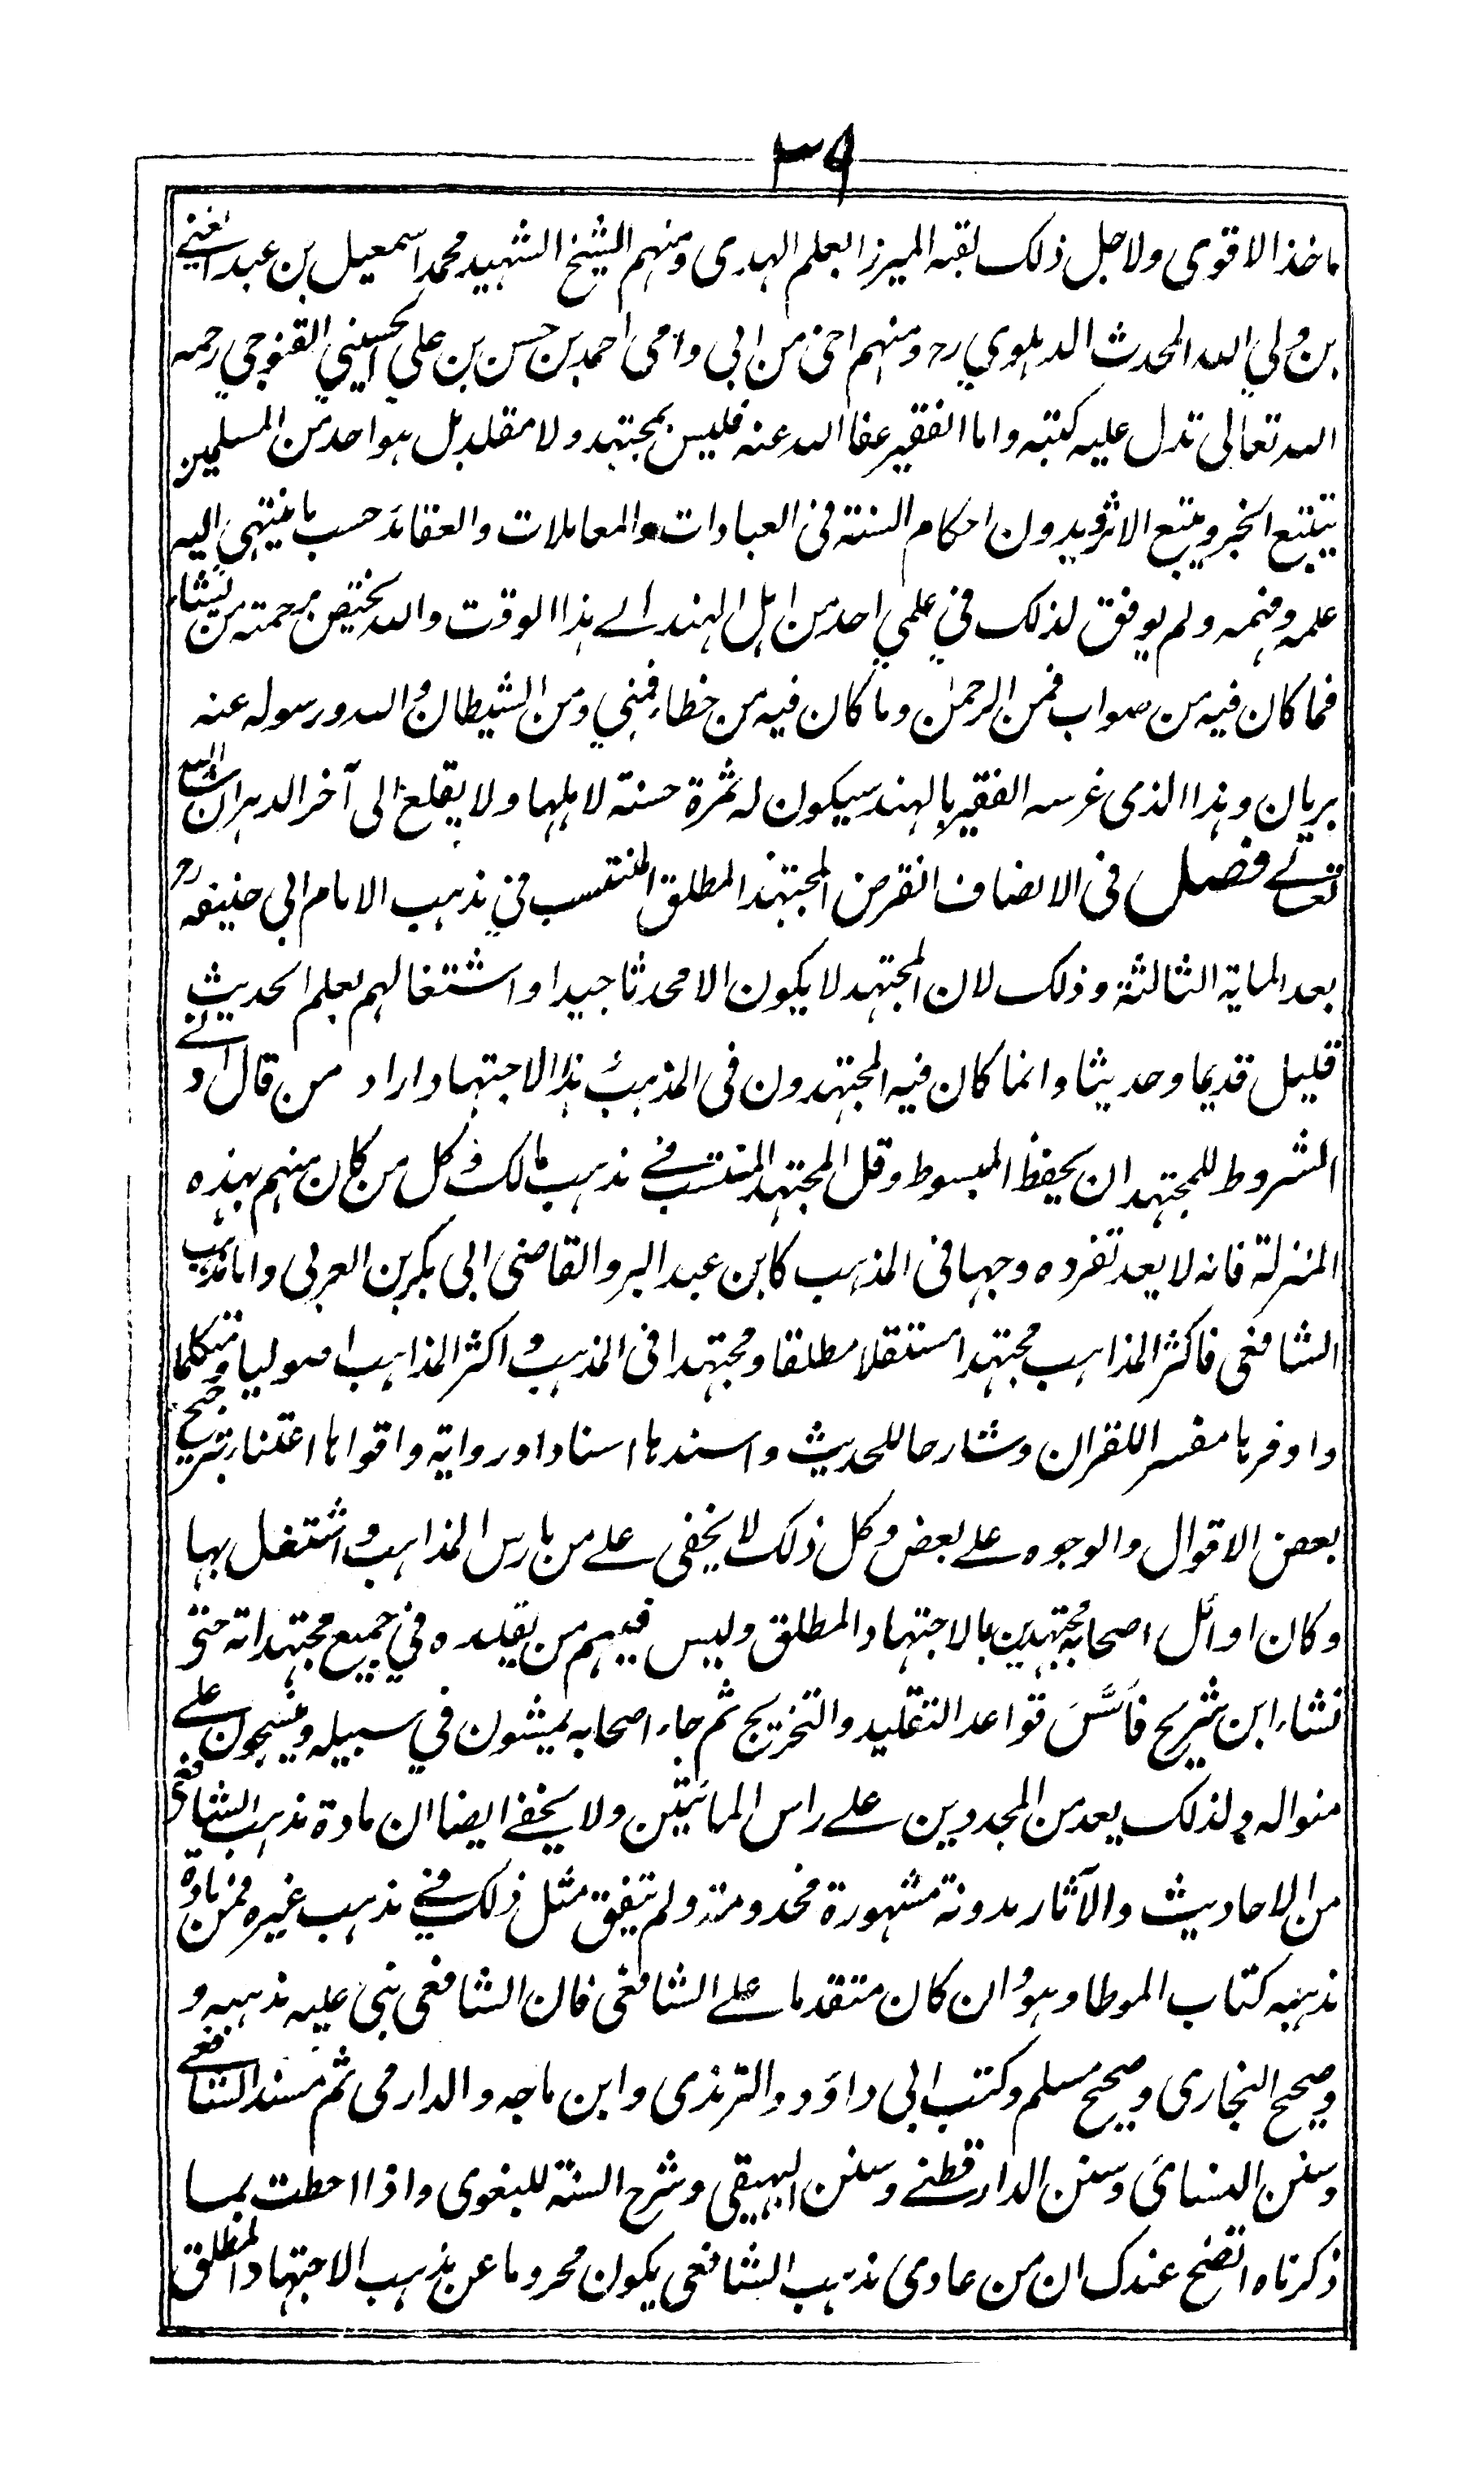 ٣٩
ماخذ الاقوى ولاجل ذلك لقبه الميرزا بعلم الهدى ومنهم الشيخ الشهيد محمد اسمعيل بن عبد الغني
بن ولي الله المحدث الدهلوي رح ومنهم اخى من ابى وامى احمد بن حسن بن علي الحسيني القنوجي رحمه
الله تعالى تدل عليه كتبه واما الفقير عفا الله عنه فليس بمجتهد ولا مقلد بل هو احد من المسلمين
يتبع الخبر ويتبع الاثر ويدون احكام السنة فى العبادات والمعاملات والعقائد حسب ما ينتهي اليه
علمه وفهمه ولم يوفق لذلك في علمي احد من اهل الهند الے هذا الوقت والله يختص برحمته من يشاء
فما كان فيه من صواب فمن الرحمن وما كان فيه من خطاء فمني ومن الشيطان والله ورسوله عنه
بريان وهذا الذى غرسه الفقير بالهند سيكون له ثمرة حسنة لاهلها ولا يقلع الى آخر الدهر ان شاء الله
تعالے فصل فى الانصاف انقرض المجتهد المطلق المنتسب في مذهب الامام ابى حنيفه رح
بعد الماية الثالثة وذلك لان المجتهد لا يكون الا محدثا جيدا واشتغالهم بعلم الحديث
قليل قديما وحديثا وانما كان فيه المجتهدون فى المذهب وهذا الاجتهاد اراد من قال ادنے
الشروط للمجتهد ان يحفظ المبسوط وقل المجتهد المنتسب فے مذهب مالك وكل من كان منهم بهذه
المنزلة فانه لا يعد تفرده وجها فى المذهب كابن عبد البر والقاضى ابى بكر بن العربى واما مذهب
الشافعى فاكثر المذاهب مجتهدا مستقلا مطلقا ومجتهدا فى المذهب واكثر المذاهب اصوليا ومتكلما
واوفرها مفسرا للقران وشارحا للحديث واسندها اسنادا ورواية واقواها اعتناء بترجيح
بعض الاقوال والوجوه علے بعض وكل ذلك لا يخفى علے من مارس المذاهب واشتغل بها
وكان اوائل اصحابه مجتهدين بالاجتهاد المطلق وليس فيهم من يقلده في جميع مجتهداته حتى
نشاء ابن شريح فاَسَّسَ قواعد التقليد والتخريج ثم جاء اصحابه يمشون في سبيله وينسجون علے
منواله ولذلك يعد من المجددين علے راس المائتين ولا يخفے ايضا ان مادة مذهب الشافعى
من الاحاديث والآثار مدونة مشهورة مخدومة ولم يتفق مثل ذلك فے مذهب غيره فمن مادة
مذهبه كتاب الموطا وهو وان كان متقدما علے الشافعى فان الشافعى بنى عليه مذهبه و
وصحيح البخارى وصحيح مسلم وكتب ابى داؤد والترمذى وابن ماجه والدارمى ثم مسند الشافعے
وسنن النسائى وسنن الدارقطنے وسنن البيهقى وشرح السنة للبغوى واذا احطت بما
ذكرناه اتضح عندك ان من عادى مذهب الشافعى يكون محروما عن مذهب الاجتهاد المطلق